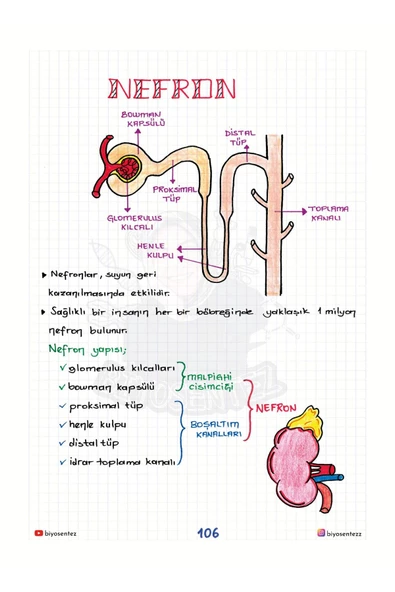 NEFRON
BOWMAN
KAPSÜLÜ
DISTAL
TÜP
PROKSIMAL
TÜP
TOPLAMA
KANALI
GLOMERULUS
KILCALI
HENLE
KULPU
▸ Nefronlar, suyun geri
kazanılmasında etkilidir.
▸ Sağlıklı bir insanın her bir böbreğinde yaklaşık 1 milyon
nefron bulunur.
Nefron yapısı;
✓ glomerulus kılcalları
✓ bowman kapsülü
MALPIGHI
CISIMCIĞI
✓ proksimal tüp
NEFRON
✓ henle kulpu
BOŞALTIM
KANALLARI
✓ distal tüp
✓ idrar toplama kanalı
biyosentez
106
biyosentezz